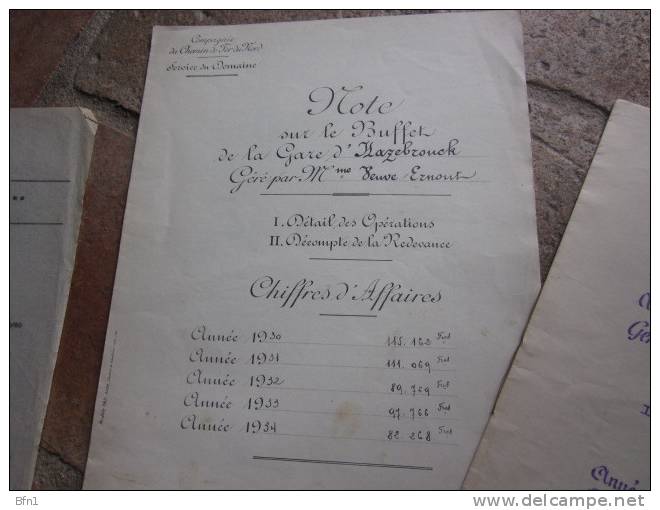 Compagnie
du Chemin de Fer du Nord
Service du Domaine
Note
sur le Buffet
de la Gare d'Hazebrouck
Géré par Mme Veuve Ernout
I. Détail des Opérations
II. Décompte de la Redevance
Chiffres d'Affaires
Année 1930 115.162 Frs
Année 1931 111.069 Frs
Année 1932 89.769 Frs
Année 1933 97.766 Frs
Année 1934 82.268 Frs
Bfn1
delcampe.net